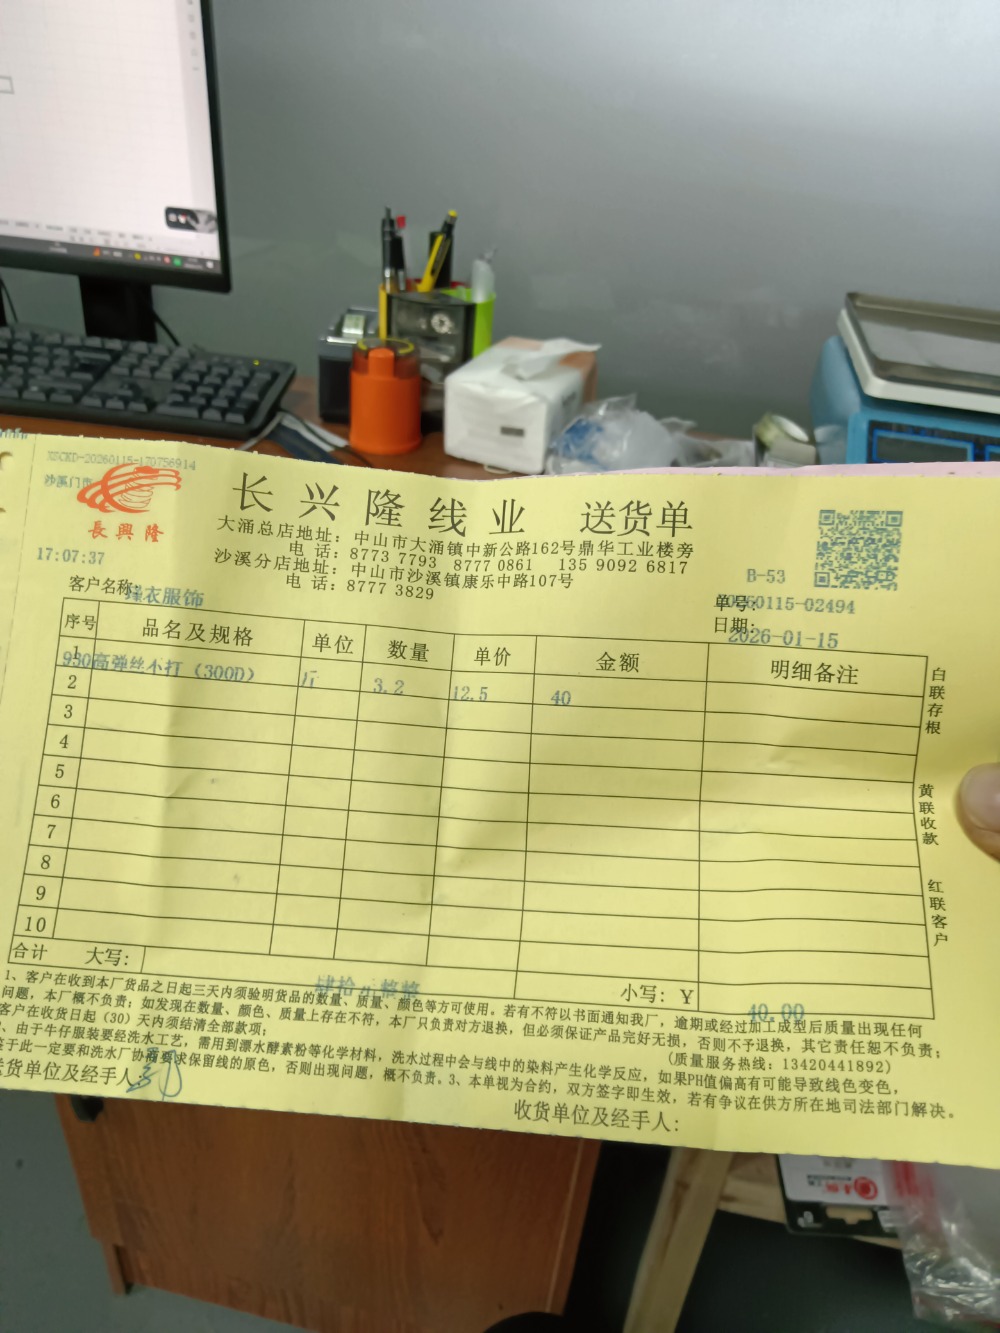 XSCKD-20260115-170756914
沙溪门市
長興隆
17:07:37
长兴隆线业 送货单
大涌总店地址：中山市大涌镇中新公路162号鼎华工业楼旁
电话：8773 7793 8777 0861 135 9092 6817
沙溪分店地址：中山市沙溪镇康乐中路107号
电话：8777 3829
B-53
客户名称：臻衣服饰
单号：20260115-02494
日期：2026-01-15
序号 品名及规格 单位 数量 单价 金额 明细备注
1 950高弹丝小打（300D） 斤 3.2 12.5 40
2
3
4
5
6
7
8
9
10
合计 大写：肆拾元整 小写：￥ 40.00
白联存根
黄联收款
红联客户
1、客户在收到本厂货品之日起三天内须验明货品的数量、质量、颜色等方可使用。若有不符以书面通知我厂，逾期或经过加工成型后质量出现任何
问题，本厂概不负责；如发现在数量、颜色、质量上存在不符，本厂只负责对方退换，但必须保证产品完好无损，否则不予退换，其它责任恕不负责；
客户在收货日起（30）天内须结清全部款项；
（质量服务热线：13420441892）
、由于牛仔服装要经洗水工艺，需用到漂水酵素粉等化学材料，洗水过程中会与线中的染料产生化学反应，如果PH值偏高有可能导致线色变色，
鉴于此一定要和洗水厂协商要求保留线的原色，否则出现问题，概不负责。3、本单视为合约，双方签字即生效，若有争议在供方所在地司法部门解决。
送货单位及经手人：
收货单位及经手人：